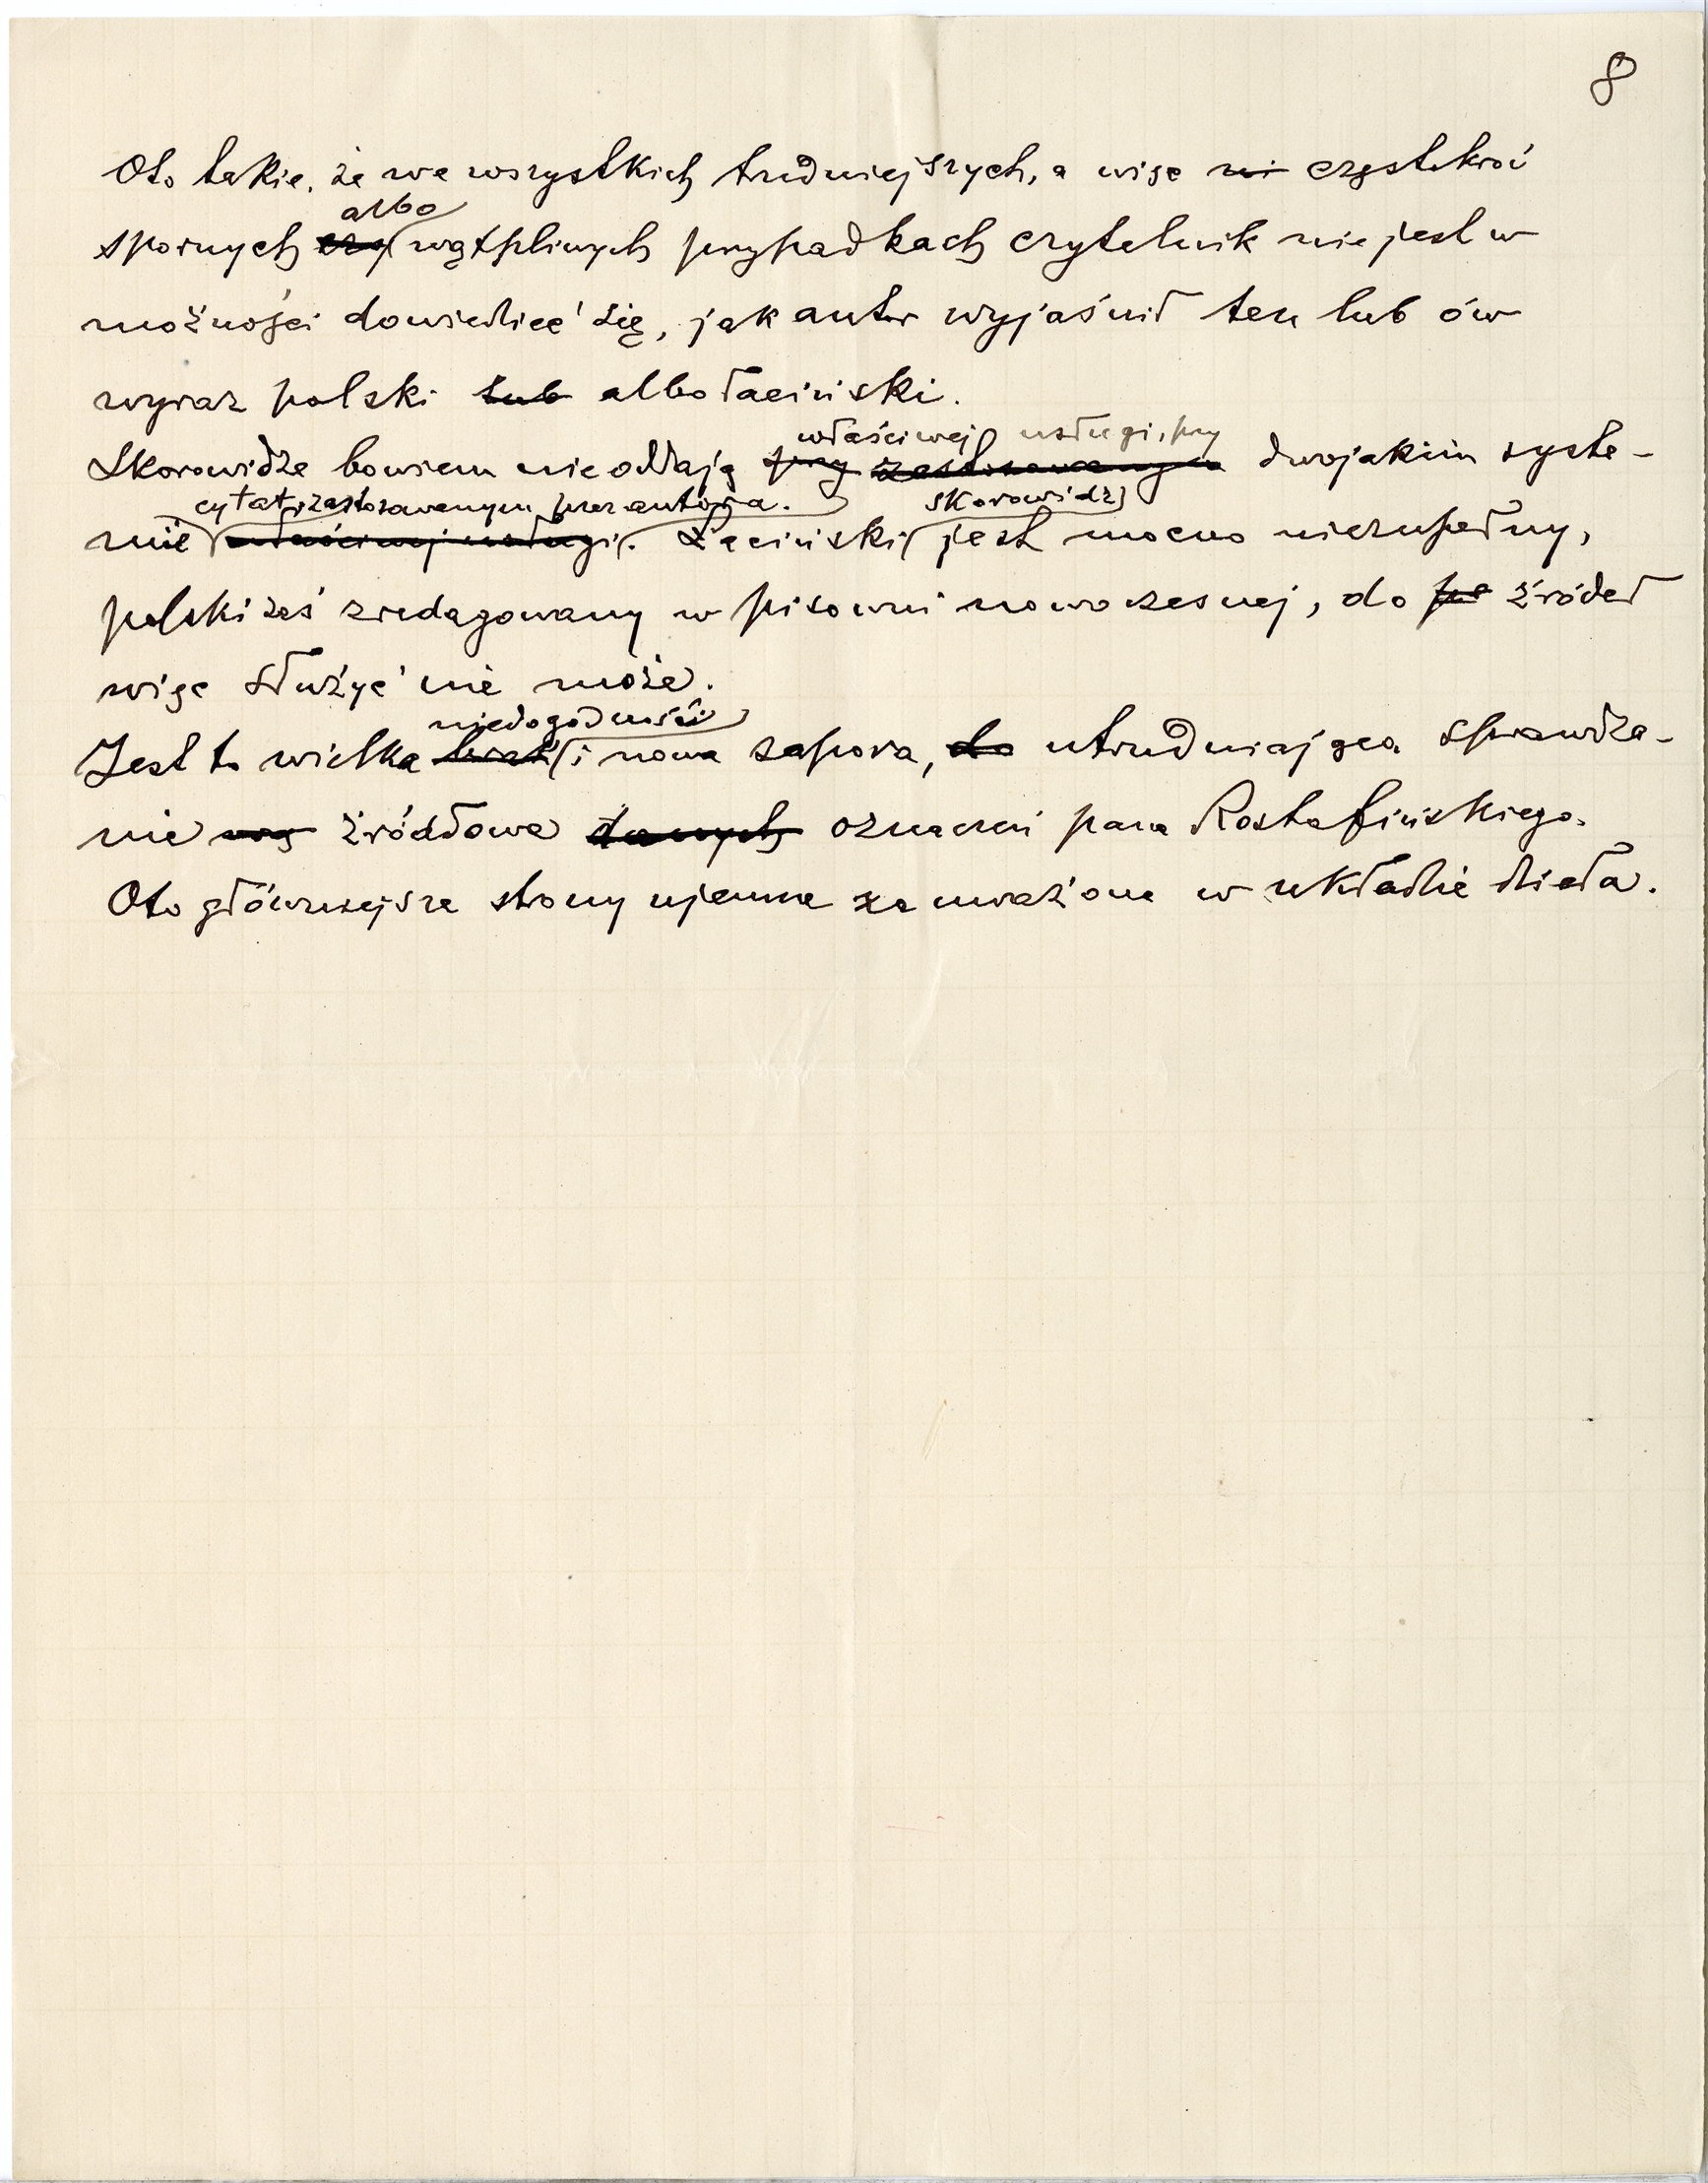 8
Oto takie, że we wszystkich trudniejszych, a więc ni częstokroć
albo
spornych czy wątpliwych przypadkach czytelnik nie jest w
możności dowiedzieć się, jak autor wyjaśnił ten lub ów
wyraz polski lub albo łaciński.
właściwej usługi, przy
Skorowidze bowiem nie oddają przy zastosowanym dwojakim syste-
cytat, zastosowanym przez autora. skorowidz
mie właściwej usługi. Łaciński jest mocno niezupełny,
polski zaś zredagowany w pisowni nowoczesnej, do źródeł
więc służyć nie może.
niedogodność
Jest to wielka brak i nowa zapora, do utrudniająca sprawdza-
nie źródłowe danych oznaczeń pana Rostafińskiego.
Oto główniejsze strony ujemne zauważone w układzie dzieła.